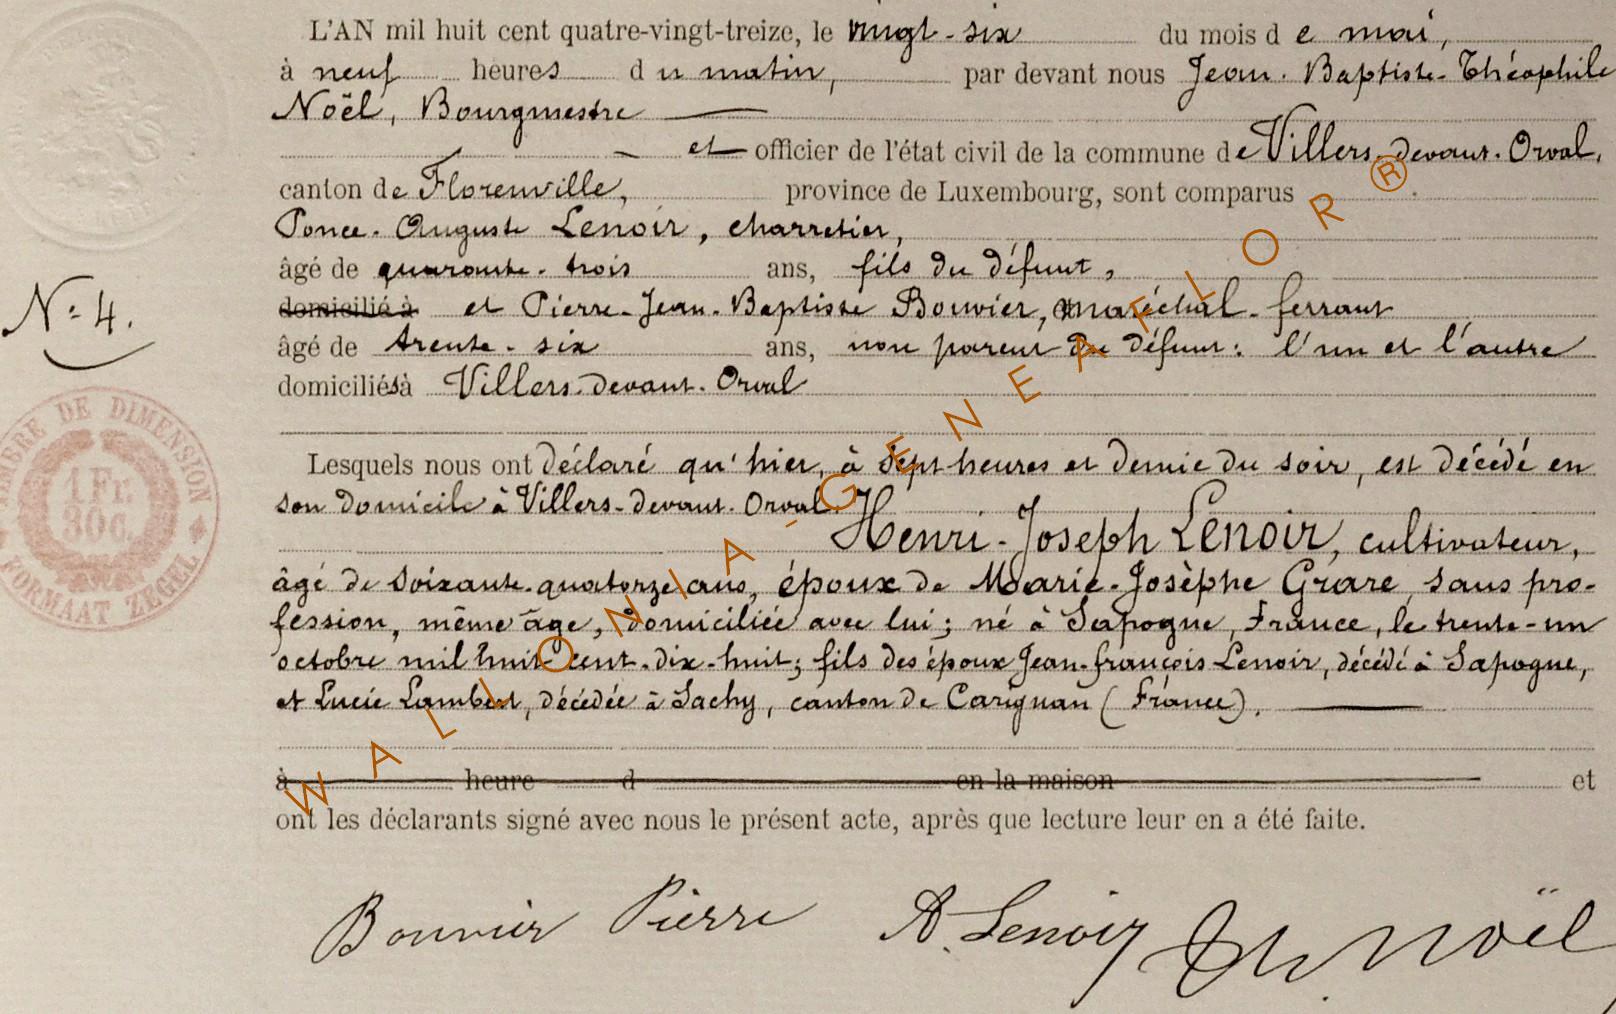 L'AN mil huit cent quatre-vingt-treize, le vingt-six du mois de mai,
à neuf heures du matin, par devant nous Jean-Baptiste-Théophile
Noël, Bourgmestre
et officier de l'état civil de la commune de Villers-devant-Orval,
canton de Florenville, province de Luxembourg, sont comparus
Ponce-Auguste Lenoir, charretier,
âgé de quarante-trois ans, fils du défunt,
domicilié à et Pierre-Jean-Baptiste Bouvier, maréchal-ferrant
N° 4.
âgé de trente-six ans, non parent du défunt: l'un et l'autre
domiciliés à Villers-devant-Orval
TIMBRE DE DIMENSION
1 Fr. 30 c.
FORMAAT ZEGEL
Lesquels nous ont déclaré qu'hier, à sept heures et demie du soir, est décédé en
son domicile à Villers-devant-Orval
Henri-Joseph Lenoir, cultivateur,
âgé de soixante-quatorze ans, époux de Marie-Josèphe Grare, sans pro-
fession, même âge, domiciliée avec lui; né à Sapogne, France, le trente-un
octobre mil huit-cent-dix-huit; fils des époux Jean-françois Lenoir, décédé à Sapogne,
et Lucie Lambert, décédée à Sachy, canton de Carignan (France).
à heure d en la maison et
ont les déclarants signé avec nous le présent acte, après que lecture leur en a été faite.
Bouvier Pierre A. Lenoir Noël
WALLONIA-GENEAFLOR®